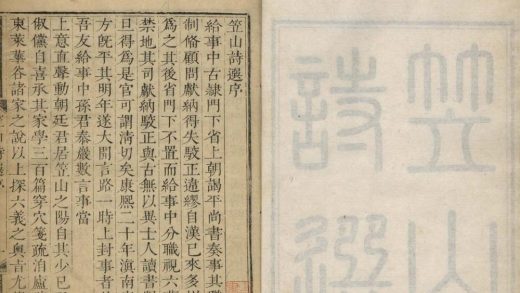 笠山
詩選
笠山詩選序
給事中古隸門下省上朝謁平尚書奏事其職
制脩顧問獻納得失駁正違繆自漢已來多
為之其後省門下不置而給事中分職視六
禁地其司獻納駁正與古無以異士人讀書
旦得為是官可謂清切矣康熙二十年滇南
方既平其明年遂大開言路一時上封事者
吾友給事中孫君泰巖數言事當
上意直聲動朝廷君居笠山之陽自其少已
俶儻自喜承其家學三百篇穿穴箋疏洎
東萊華谷諸家之說以上探六義之奧旨尤